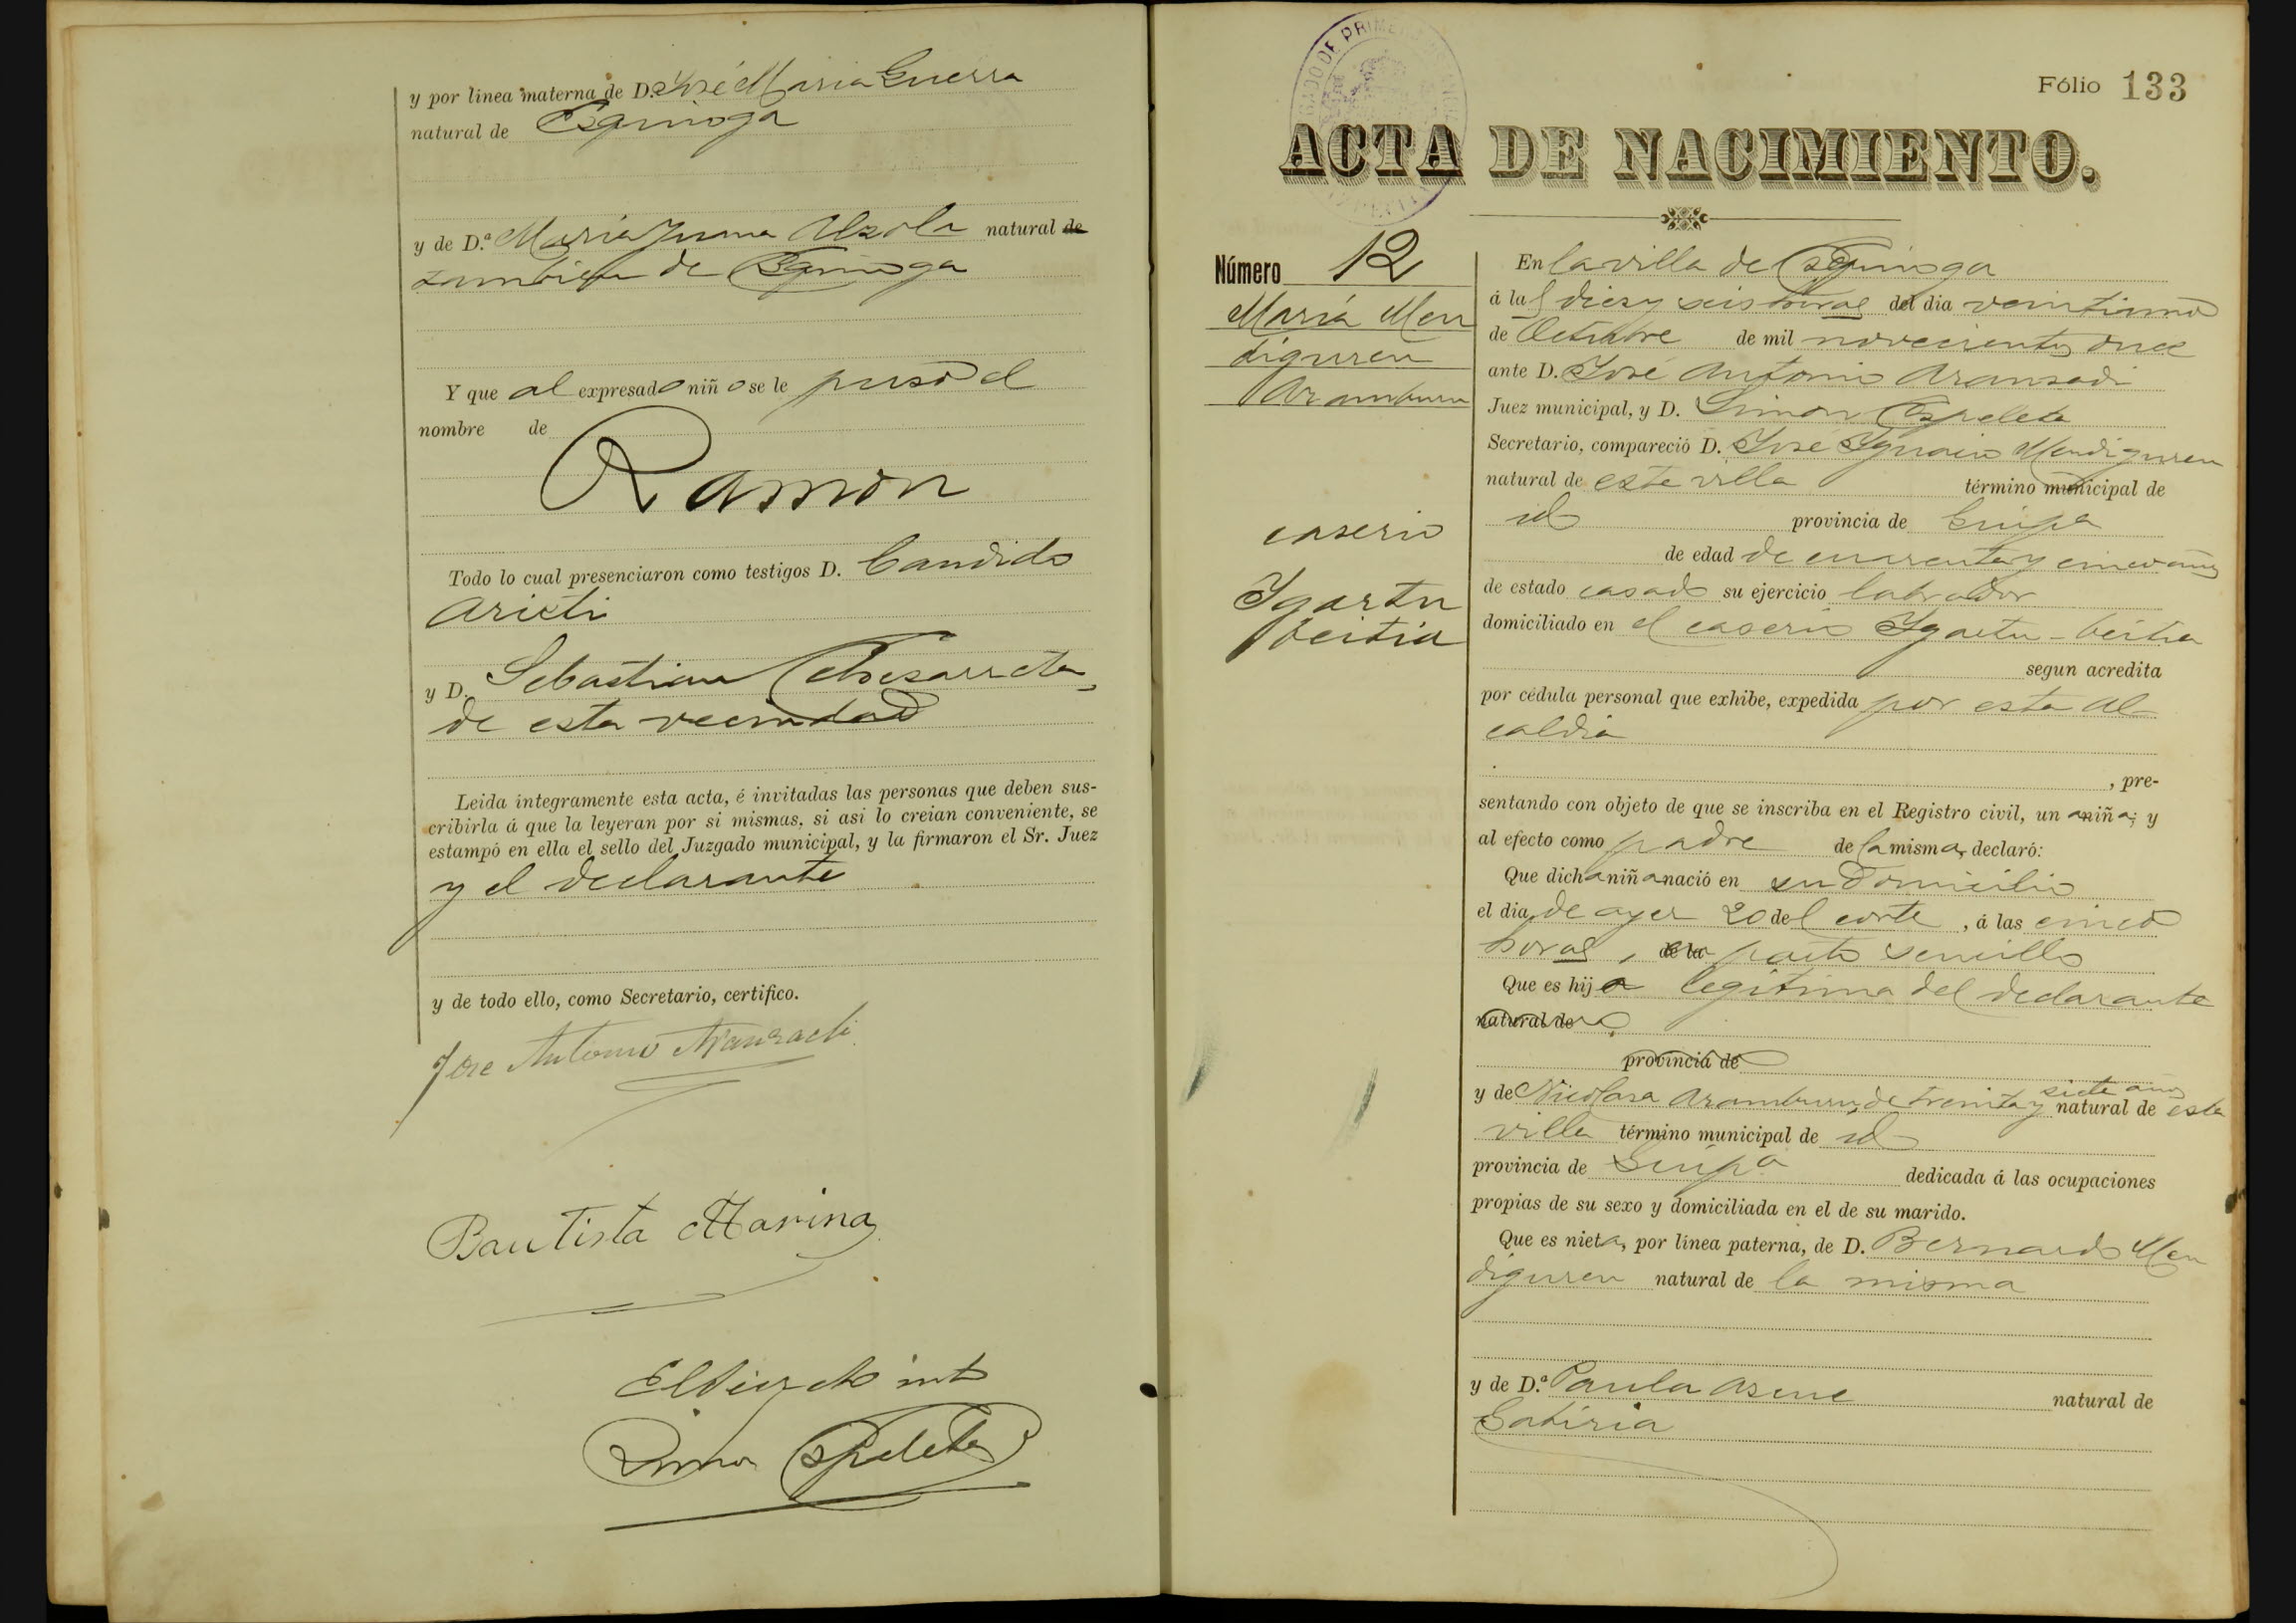 y por línea materna de D. José María Guerra
natural de Ezquioga
y de D.ª María Juana Alzola natural de
tambien de Ezquioga
Y que al expresado niño se le puso el
nombre de
Ramón
Todo lo cual presenciaron como testigos D. Candido
Aristi
y D. Sebastian Echezarreta,
de esta vecindad
Leida íntegramente esta acta, é invitadas las personas que deben sus-
cribirla á que la leyeran por si mismas, si asi lo creian conveniente, se
estampó en ella el sello del Juzgado municipal, y la firmaron el Sr. Juez
y el declarante
y de todo ello, como Secretario, certifico.
Jose Antonio Aranzadi
Bautista Marina
Simon Ezpeleta
Fólio 133
ACTA DE NACIMIENTO.
Número 12
María Men
diguren
Aramburu
caserio
Ygartu
beitia
En la villa de Ezquioga
á las diez y seis horas del dia veintiuno
de Octubre de mil novecientos once
ante D. José Antonio Aranzadi
Juez municipal, y D. Simon Ezpeleta
Secretario, compareció D. José Ygnacio Mendiguren
natural de esta villa término municipal de
id provincia de Guipª
de edad de cuarenta y cinco años
de estado casado su ejercicio labrador
domiciliado en el caserio Ygartu-beitia
segun acredita
por cédula personal que exhibe, expedida por esta Al
caldia
, pre-
sentando con objeto de que se inscriba en el Registro civil, una niña; y
al efecto como padre de la misma, declaró:
Que dicha niña nació en su domicilio
el dia de ayer 20 del corte, á las cinco
horas, de la parto sencillo
Que es hija legitima del declarante
natural de
provincia de
y de Nicolasa Aramburu, de treinta y siete años natural de esta
villa término municipal de id
provincia de Guipª dedicada á las ocupaciones
propias de su sexo y domiciliada en el de su marido.
Que es nieta, por línea paterna, de D. Bernardo Men
diguren natural de la misma
y de D.ª Paula Asene natural de
Gabiria